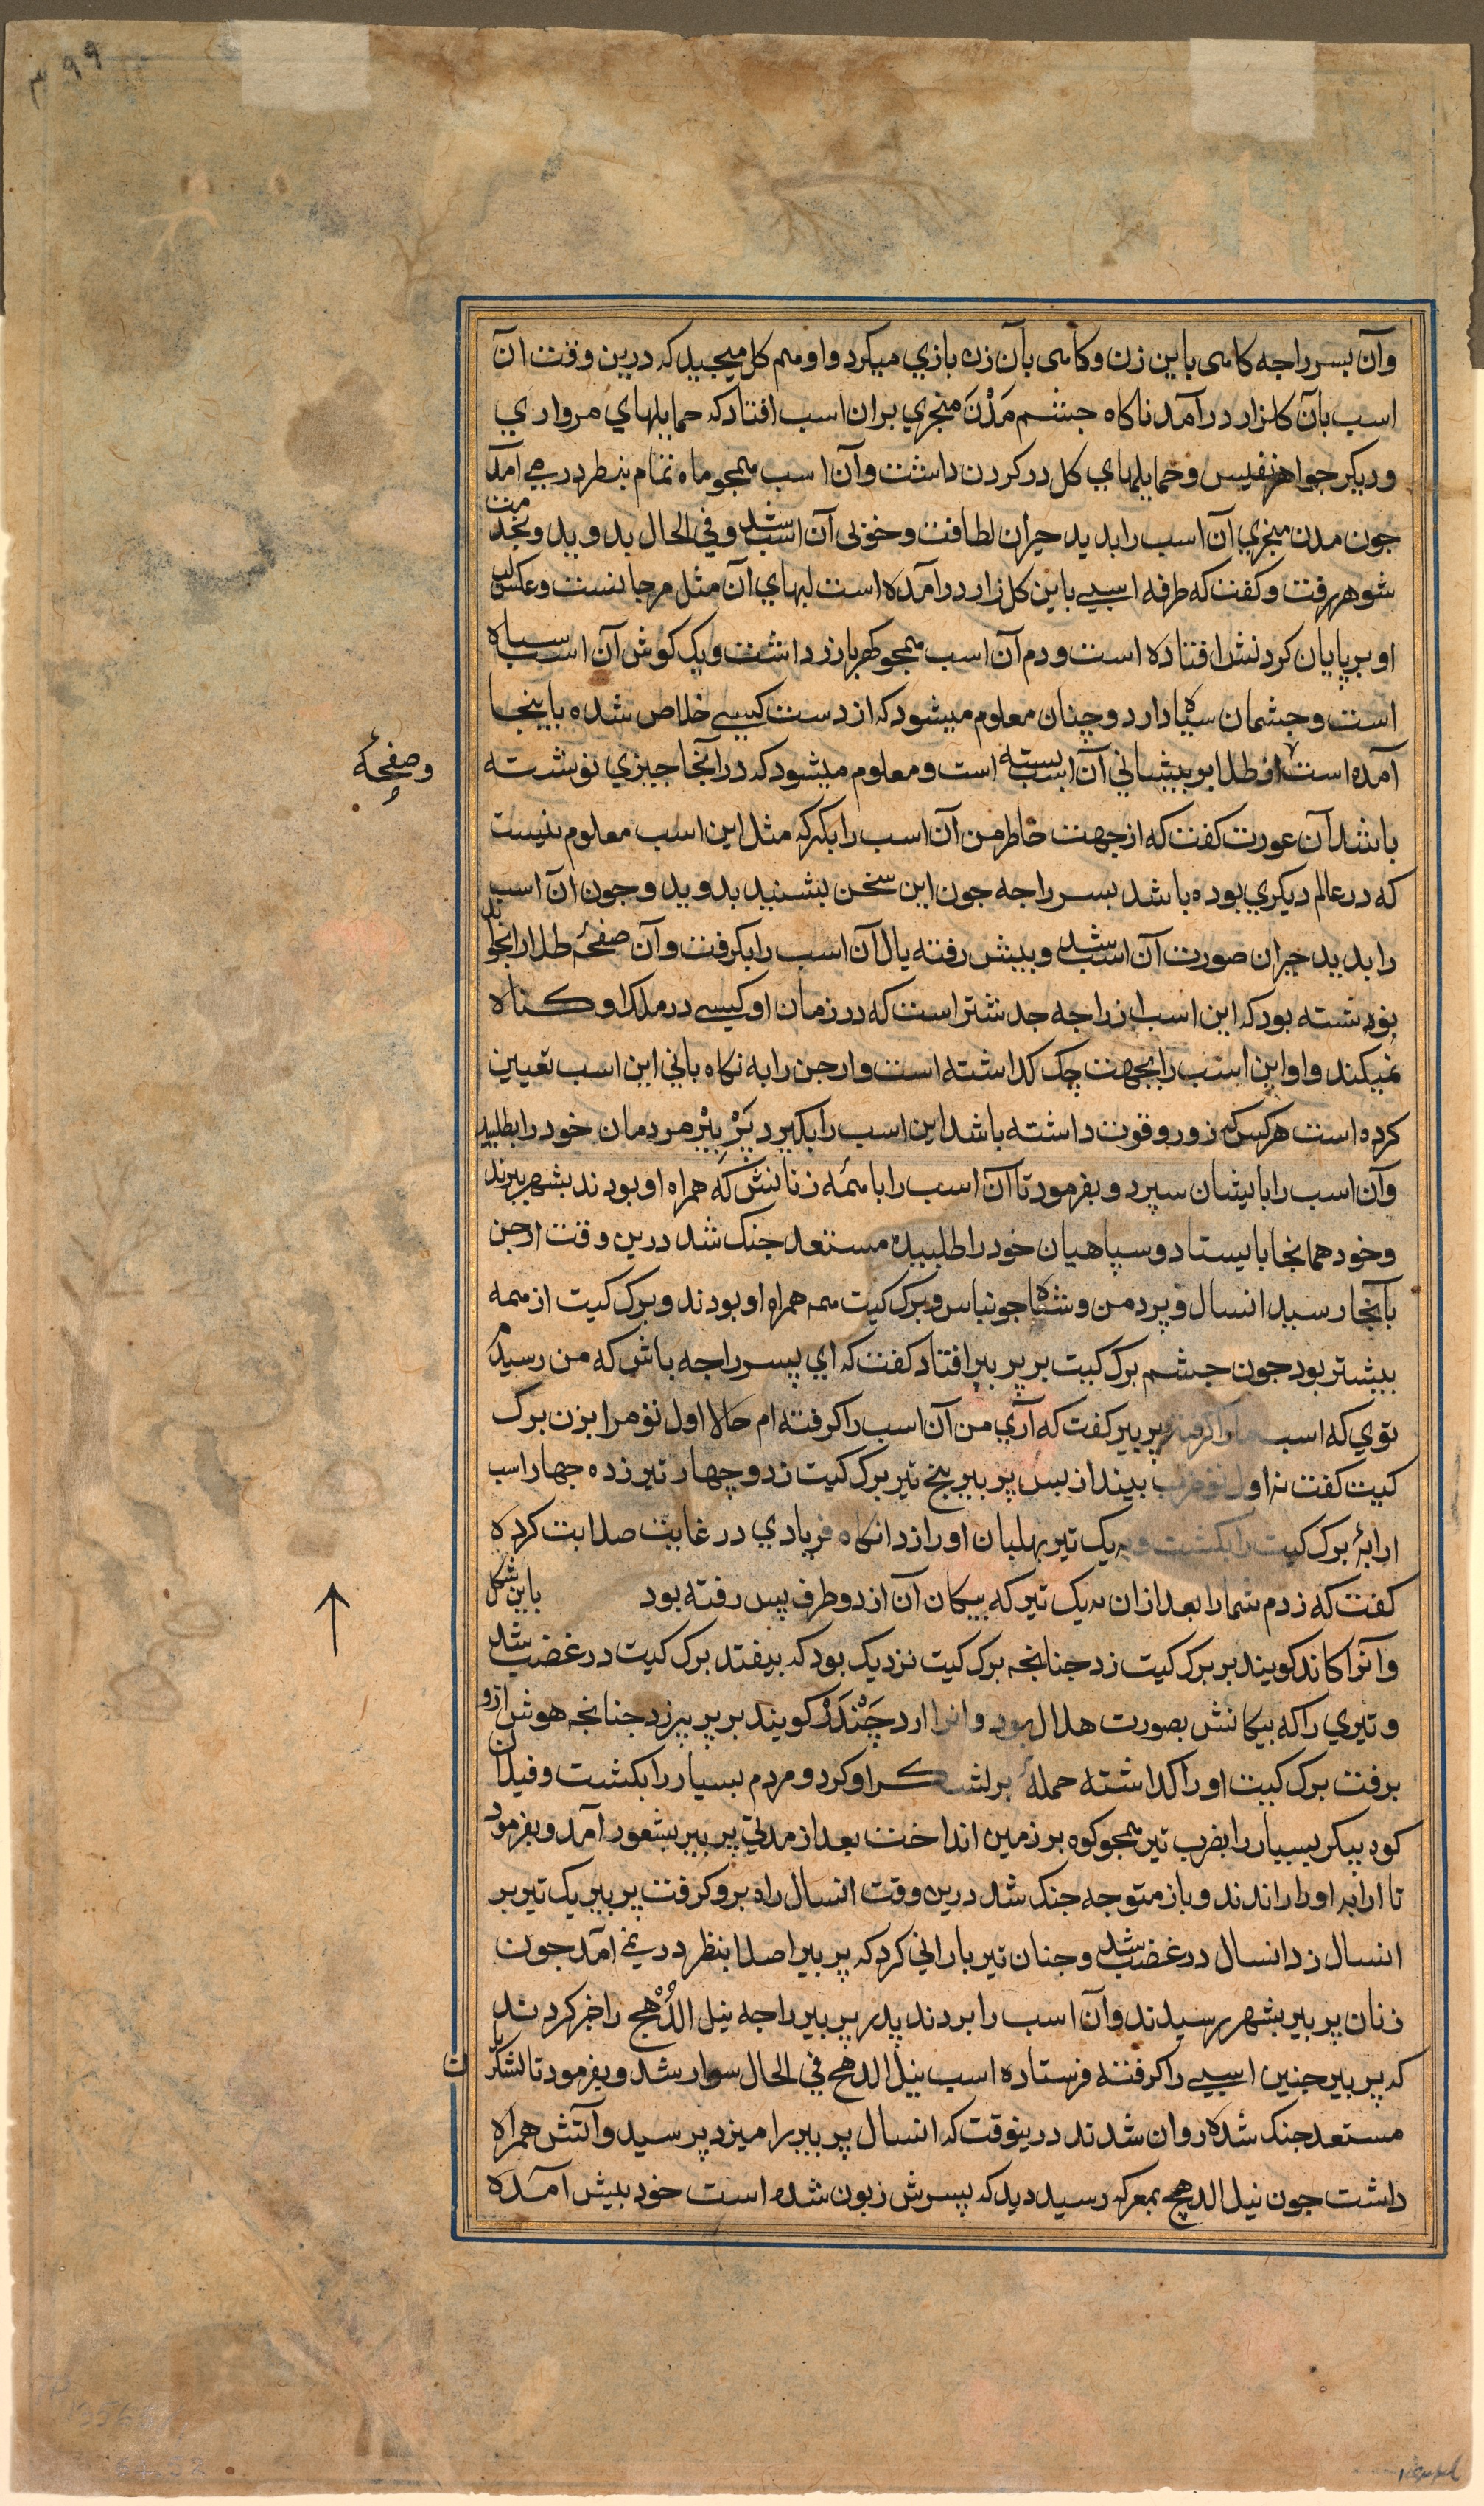 ۳۹۹
وآن بسر راجه کاهی باین زن و کاهی بآن زن بازي میکرد و او هم کل میجید که درین وقت آن
اسب بآن کلزار درآمد ناکاه جشم مَدْنَ منجري بران اسب افتاد که حمایلهاي مرواري
و دیکر جواهر نفیس و حمایلهاي کل در کردن داشت وآن اسب همجو ماه تمام بنطر درمی آمد
جون مدن منجري آن اسب را بدید حیران لطافت و خوبی آن اسب شد و فی الحال بدوید و بخدمت
شوهر رفت و کفت که طرفه اسپی باین کلزار درآمده است لبهاي آن مثل مرجانست و عکس لب
او بر پایان کردنش افتاده است و دم آن اسب همجو کهربا زرد است و یک کوش آن اسب سیاه
است و جشمان سیاه دارد و چنان معلوم میشود که از دست کسی خلاص شده باینجا
آمده است از طلا بر بیشانی آن اسب بسته است و معلوم میشود که درآنجا جیزي نوشته
و صفحهٔ
باشد آن عورت کفت که از جهت خاطر من آن اسب را بکیر که مثل این اسب معلوم نیست
که در عالم دیکري بوده باشد بسر راجه جون این سخن بشنید بدوید و جون آن اسب
را بدید حیران صورت آن اسب شد و بیش رفته یال آن اسب را بکرفت وآن صفحهٔ طلا را بخواند
نوشته بود که این اسب از راجه جدشتر است که در زمان او کسی در ملک او کناه
نمیکند و او این اسب را بجهت جک کذاشته است و ارجن را به نکاه بانی این اسب تعیین
کرده است هر کس که زور و قوت داشته باشد این اسب را بکیرد پَرْبیْر مردمان خود را بطلبید
وآن اسب را بایشان سپرد و بفرمود تا آن اسب را با همه زنانش که همراه او بودند بشهر ببرند
و خود همانجا بایستاد و سپاهیان خود را طلبیده مستعد جنک شد درین وقت ارجن
بآنجا رسید انسال و پردمن و شاه جوناس و برک کیت همه همراه او بودند و برک کیت از همه
بیشتر بود جون جشم برک کیت بر پربیر افتاد کفت که اي پسر راجه باش که من رسیدم
توي که اسب ما را کرفته پربیر کفت که آري من آن اسب را کرفته ام حالا اول تو مرا بزن برک
کیت کفت نه اول تو ضرب بینداز بس پربیر پنج تیر برک کیت زد و چهار تیر زده چهار اسب
ارابهٔ برک کیت را بکشت و به یک تیر بهلبان او را زد انکاه فریادي در غایت صلابت کرده
کفت که زدم شما را بعد ازان به یک تیر که بیکان آن از دو طرف پس رفته بود باین شکل
↑
وآنرا کاند کویند بر برک کیت زد جنانجه برک کیت نزدیک بود که بیفتد برک کیت در غضب شد
و تیري را که بیکانش بصورت هلال بود و انرا ارد چَنْدَرْ کویند بر پربیر زد جنانجه هوش ازو
برفت برک کیت او را کذاشته حملهٔ بر لشکر او کرد و مردم بسیار را بکشت و فیلان
کوه پیکر بسیار را بضرب تیر همجو کوه بر زمین انداخت بعد از مدتی پربیر بشعور آمد و بفرمود
تا ارابه او را راندند و باز متوجه جنک شد درین وقت انسال راه برو کرفت پربیر یک تیر بر
انسال زد انسال در غضب شد و جنان تیر بارانی کرد که پربیر اصلا بنظر در نمی آمد جون
زنان پربیر بشهر رسیدند وآن اسب را بردند پدر پربیر راجه نیل الدُهج را خبر کردند
که پربیر جنین اسپی را کرفته فرستاده است نیل الدهج فی الحال سوار شد و بفرمود تا لشکریان
مستعد جنک شده روان شدند درینوقت که انسال پربیر را میزد پر سید وآتش همراه
داشت جون نیل الدهج بمعرکه رسید دید که پسرش زبون شده است خود بیش آمده